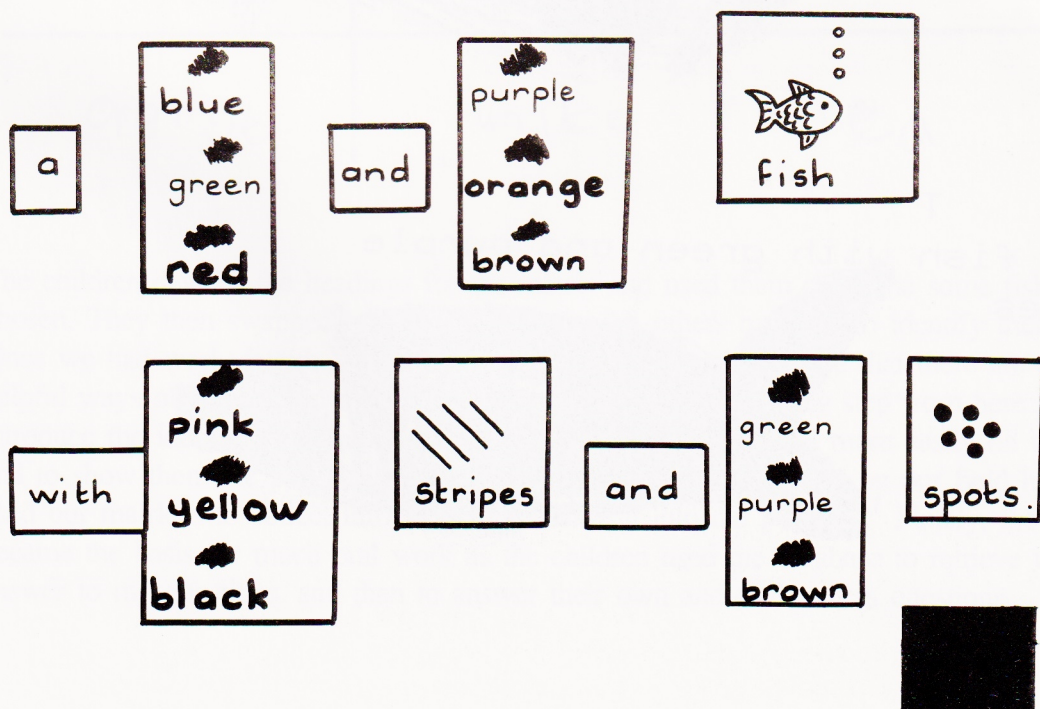 a
blue
green
red
and
purple
orange
brown
fish
with
pink
yellow
black
stripes
and
green
purple
brown
spots.